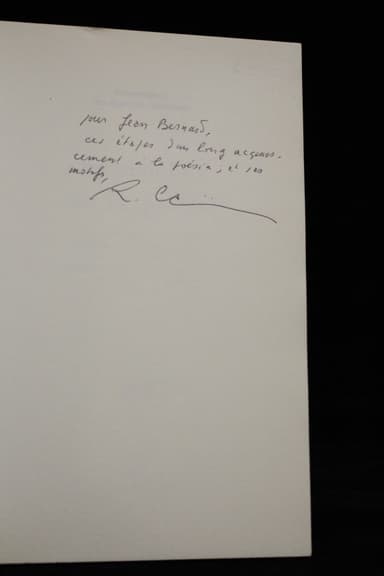 pour Jean Bernard,
ces étapes d'un long acquies-
cement à la poésie, et ses
motifs,
R.